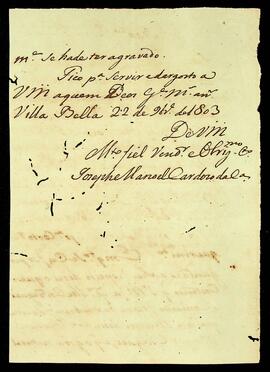 mª. se hade ter agravado.
Fico pª. servir e dar gosto a
VM aquem Deos Gᵉ. Mˢ. anˢ.
Villa Bella 22 de 9bʳ. de 1803
De VM
Mᵗᵒ fiel Venᵈʳ. e Obrigᵐᵒ Cᵒ.
Josephe Manoel Cardozo da Cª.